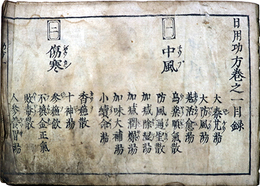 日用功方卷之 目録
一 中風
大秦艽湯
大防風湯
烏藥順氣散
防風通聖散
加減除湿湯
加減潤燥湯
加味大補湯
小續命湯
二 傷寒
香蘓散
十神湯
不換金正氣
参蘓飲
敗毒散
人参養胃湯